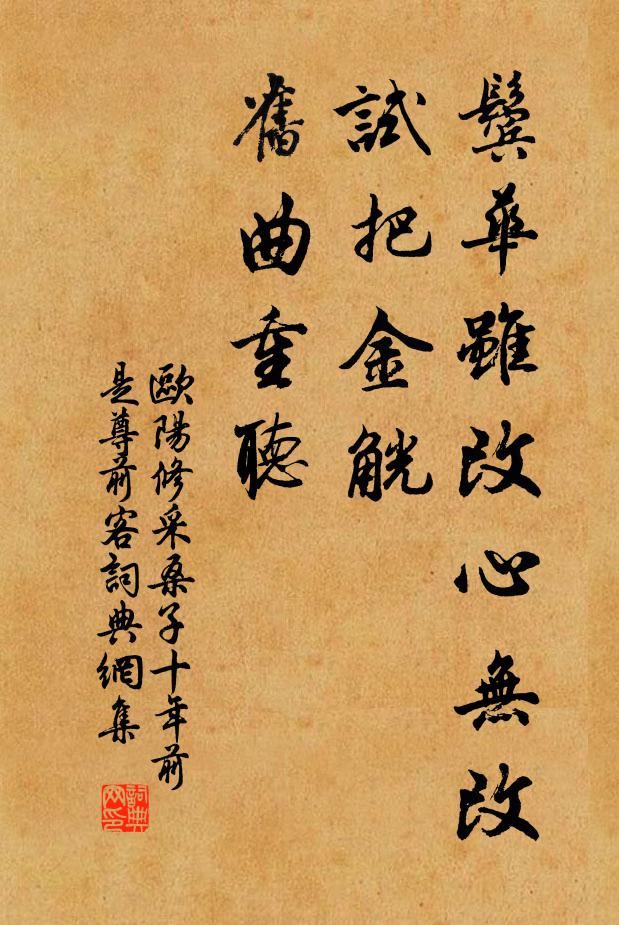 鬢華雖改心無改
試把金觥
舊曲重聽
歐陽修采桑子十年前
是尊前客詞典網集
詞典網印